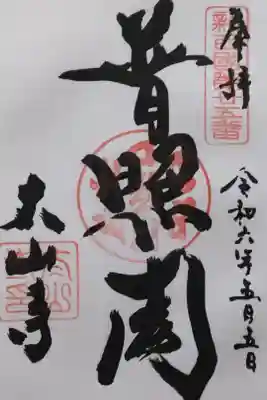 奉拝
新西國第廿五番
普照閣
令和六年五月五日
太山寺